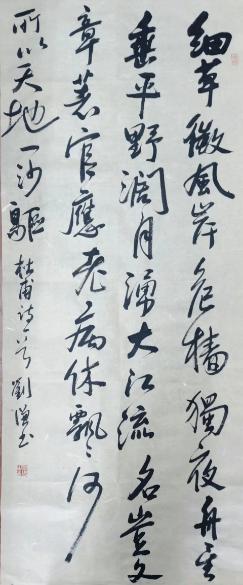 細草微風岸危檣獨夜舟星
垂平野濶月湧大江流名豈文
章著官應老病休飄〻何
所似天地一沙鷗 杜甫詩一首 劉書